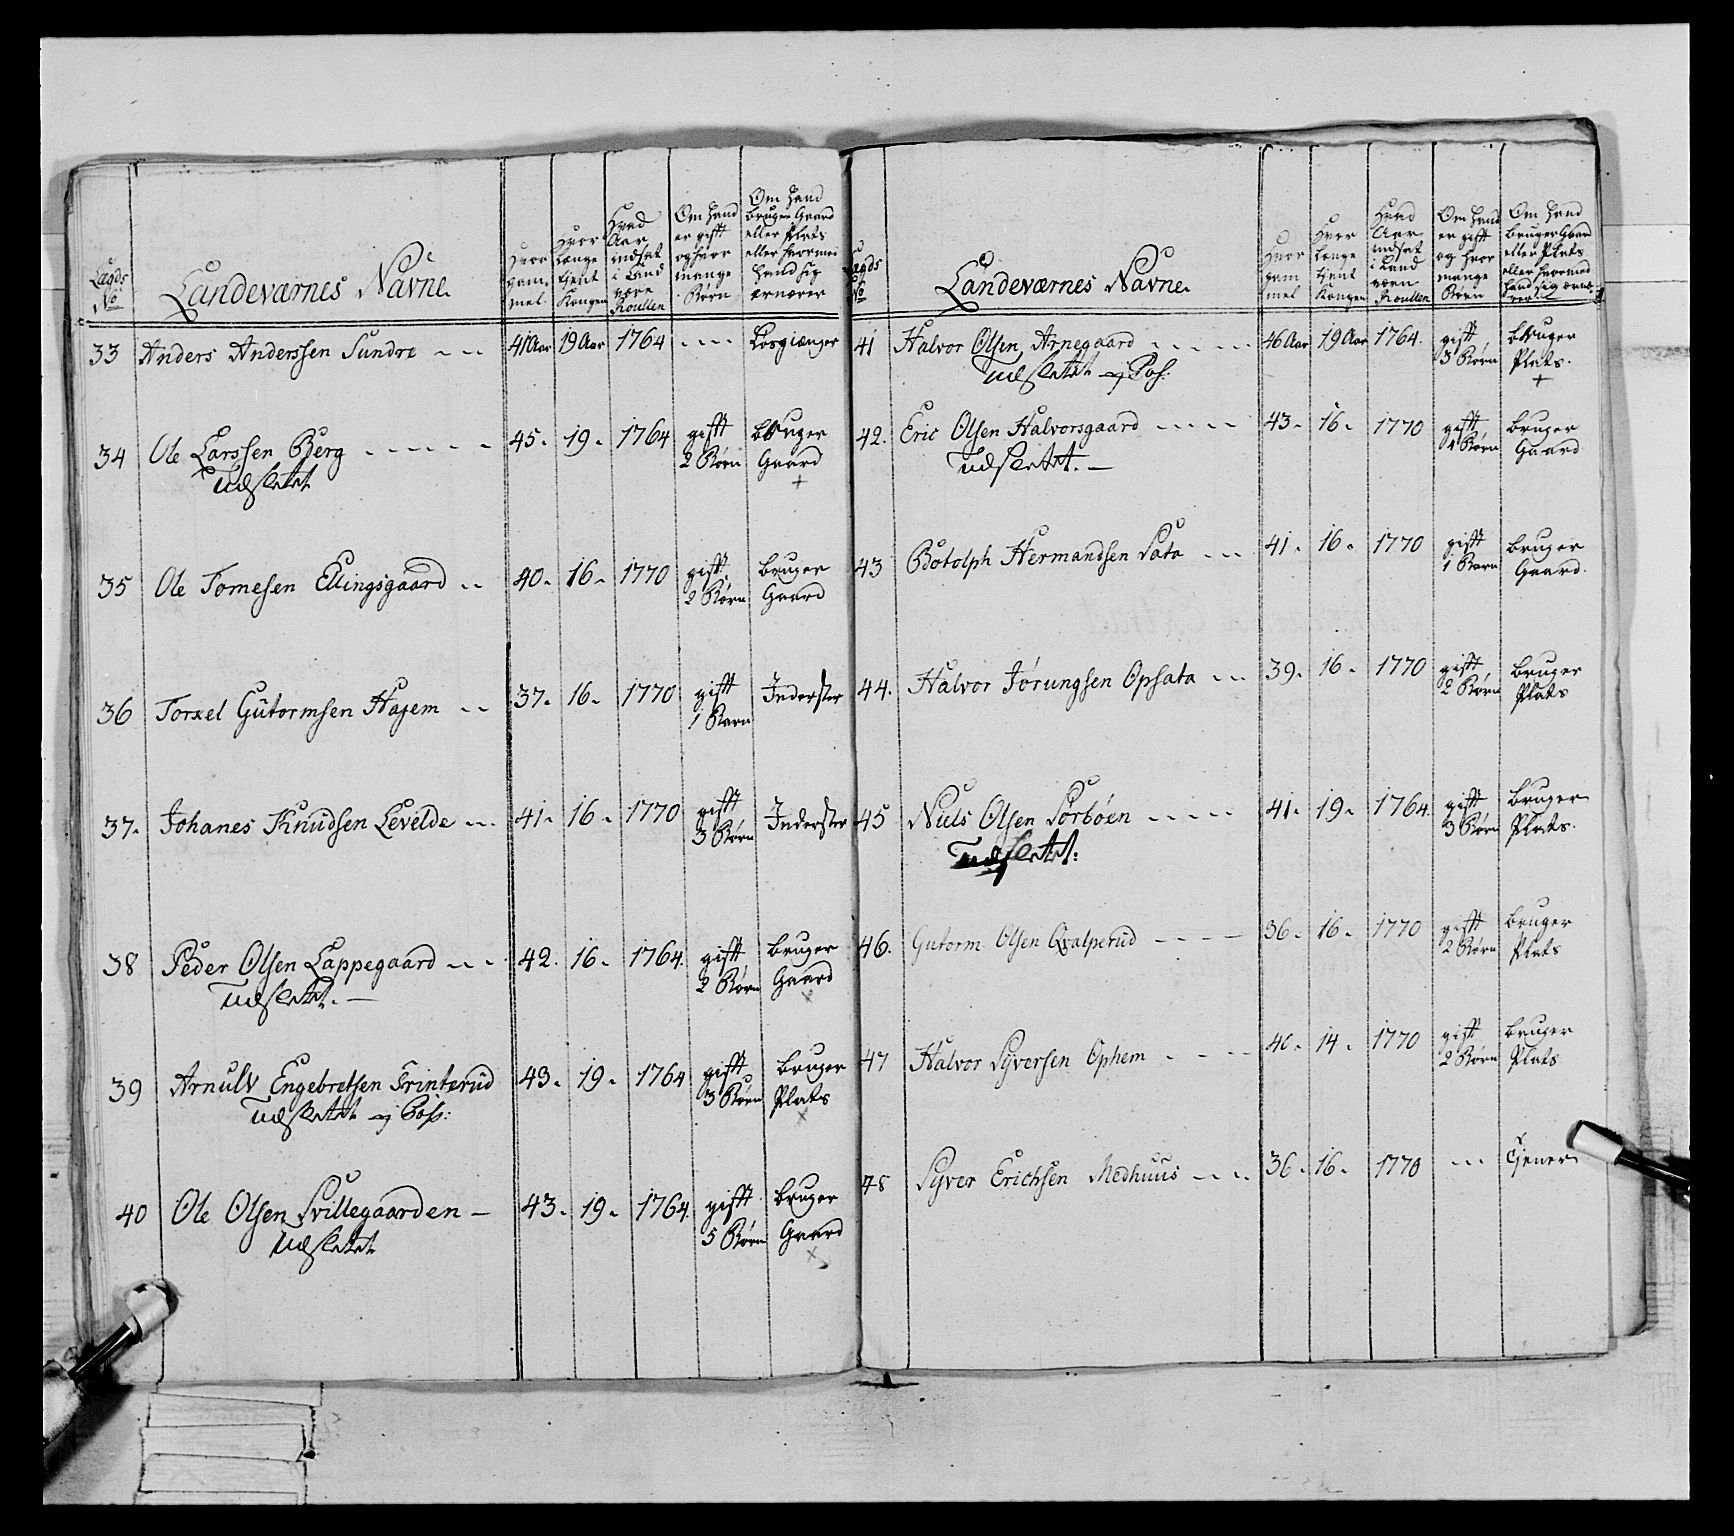 Lægds
No
Landeværnes Navne
Hvor
gam-
mel
Hvor
længe
tient
Kongen
Hvad
Aar
indsat
i Land
være
Roullen
Om hand
er gift
og hvor
mange
Børn
Om hand
bruger Gaard
eller Plats
eller hvormed
hand sig
ernærer
33 Anders Anderssen Sundre 41 Aar 19 Aar 1764 Losgiænger
34 Ole Larssen Berg 45. 19. 1764 gifft 2 Børn bruger Gaard +
Udslettet
35 Ole Tomesen Ellingsgaard 40. 16. 1770 gifft 2 Børn bruger Gaard
36 Torxel Gutormsen Hagem 37. 16. 1770 gifft 1 Barn Inderster
37. Johanes Knudsen Levelde 41. 16. 1770 gifft 3 Børn Inderster
38 Peder Olsen Lappegaard 42. 16. 1764. gifft 2 Børn bruger Gaard x
Udslettet.
39 Arnulv Engebretsen Trinterud 43. 19. 1764 gifft 3 Børn bruger Plats x
Udslettet
40 Ole Olsen Svillegaarden 43. 19. 1764. gifft 5 Børn bruger Gaard x
Udslettet
Lægds
No
Landeværnes Navne
Hvor
gam
mel
Hvor
længe
tient
Kongen
Hvad
Aar
indsat
i Land
værn
Roullen
Om hand
er gift
og hvor
mange
Børn
Om hand
bruger Gaard
eller Plats
eller hvormed
hand sig ernæ-
rer
41 Halvor Olsen Arnegaard 46 Aar 19 Aar 1764. gift 3 Børn bruger Plats. +
Udslettet
42. Eric Olsen Halvorsgaard 43. 16. 1770 gifft 4 Børn bruger Gaard
Udslettet.
43 Botolph Hermandsen Sata 41. 16. 1770 gifft 1 Barn bruger Gaard.
44. Halvor Jørungsen Opsata 39. 16. 1770 gifft 2 Børn bruger Plats
45 Niels Olsen Sørbøen 41. 19. 1764. gift 3 Børn bruger Plats.
Udslettet:
46. Gutorm Olsen Qvalperud 36. 16. 1770 gifft 2 Børn bruger Plats
47 Halvor Syversen Ophem 40. 14. 1770 gift 2 Børn bruger Plats
48 Syver Erichsen Medhuus 36. 16. 1770 tjener